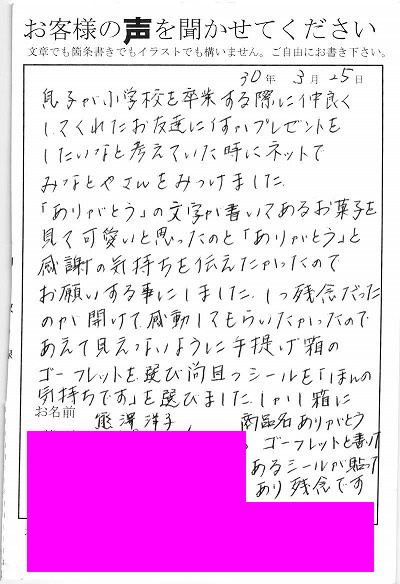 お客様の声を聞かせてください
文章でも箇条書きでもイラストでも構いません。ご自由にお書き下さい。
30年 3月 25日
息子が小学校を卒業する際に仲良く
してくれたお友達に何かプレゼントを
したいなと考えていた時にネットで
みなとやさんをみつけました。
「ありがとう」の文字が書いてあるお菓子を
見て可愛いと思ったのと「ありがとう」と
感謝の気持ちを伝えたかったので
お願いする事にしました。1つ残念だった
のが開けて感動してもらいたかったので
あえて見えないように手提げ箱の
ゴーフレットを選び尚且つシールを「ほんの
気持ちです」を選びました。しかし箱に
お名前 熊澤洋子
商品名ありがとう
ゴーフレットと書いて
あるシールが貼って
あり残念です